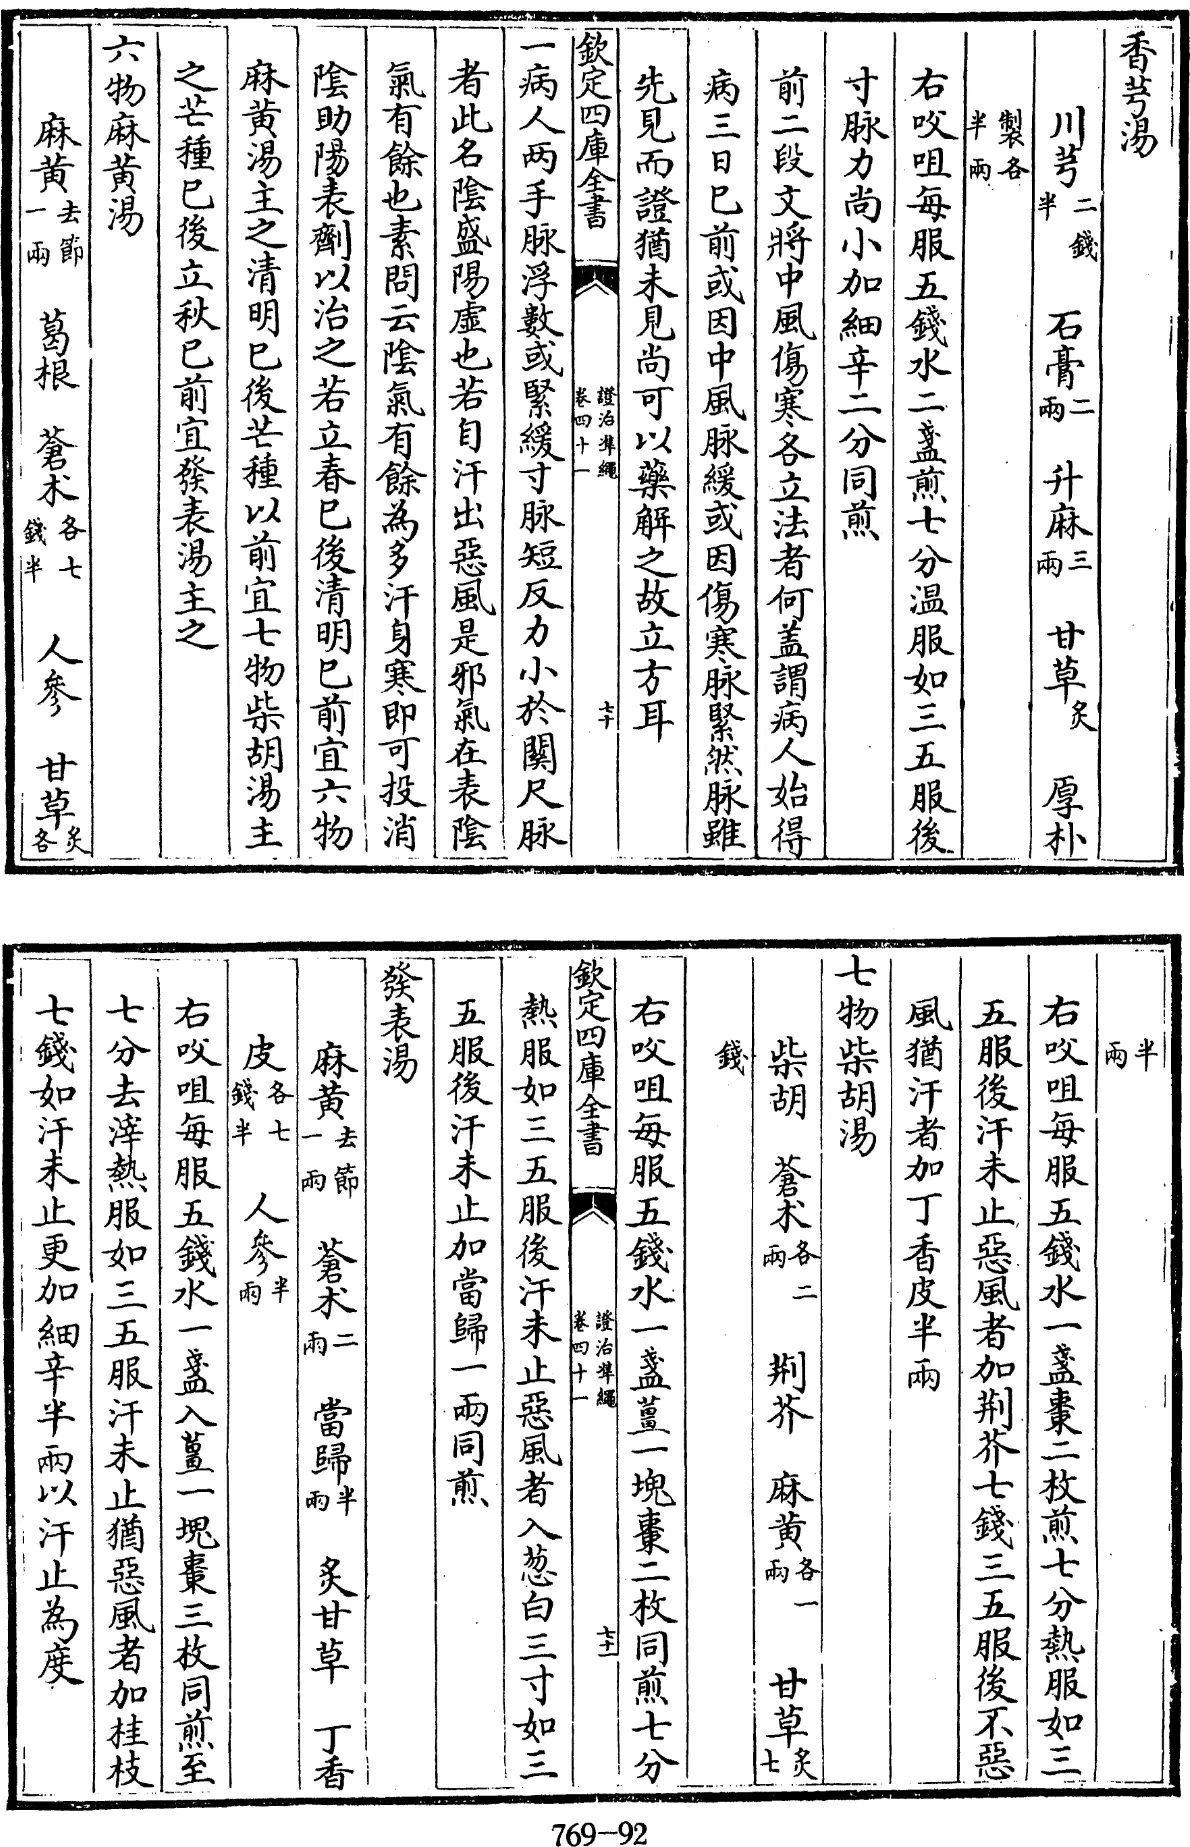 香芎湯
川芎二錢半 石膏二兩 升麻三兩 甘草炙 厚朴
製各半兩
右㕮咀每服五錢水二盞煎七分温服如三五服後
寸脉力尚小加細辛二分同煎
前二段文將中風傷寒各立法者何盖謂病人始得
病三日已前或因中風脉緩或因傷寒脉緊然脉雖
先見而證猶未見尚可以藥解之故立方耳
欽定四庫全書 證治準繩卷四十一 七十
一病人两手脉浮數或緊緩寸脉短反力小於關尺脉
者此名陰盛陽虛也若自汗出惡風是邪氣在表陰
氣有餘也素問云陰氣有餘為多汗身寒即可投消
陰助陽表劑以治之若立春已後清明已前宜六物
麻黄湯主之清明已後芒種以前宜七物柴胡湯主
之芒種已後立秋已前宜發表湯主之
六物麻黄湯
麻黄去節一兩 葛根 蒼术各七錢半 人參 甘草炙各
半兩
右㕮咀每服五錢水一盞棗二枚煎七分熱服如三
五服後汗未止惡風者加荆芥七錢三五服後不惡
風猶汗者加丁香皮半兩
七物柴胡湯
柴胡 蒼术各二兩 荆芥 麻黄各一兩 甘草炙七
錢
右㕮咀每服五錢水一盞薑一塊棗二枚同煎七分
欽定四庫全書 證治準繩卷四十一 七十一
熱服如三五服後汗未止惡風者入葱白三寸如三
五服後汗未止加當歸一兩同煎
發表湯
麻黄去節一兩 蒼术二兩 當歸半兩 炙甘草 丁香
皮各七錢半 人參半兩
右㕮咀每服五錢水一盞入薑一塊棗三枚同煎至
七分去滓熱服如三五服汗未止猶惡風者加桂枝
七錢如汗未止更加細辛半兩以汗止為度
769-92